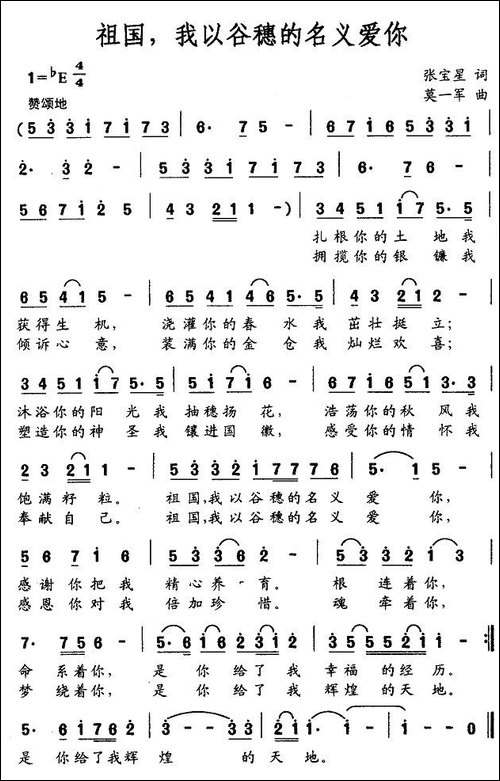 祖国，我以谷穗的名义爱你
1=♭E 4/4
张宝星 词
赞颂地
莫一军 曲
(5 3 3 1 7 1 7 3 | 6· 7 5 - | 6 7 1 6 5 3 3 1 |
2· 3 2 - | 5 3 3 1 7 1 7 3 | 6· 7 6 - |
5 6 7 1 2 5 | 4 3 2 1 1 -) | 3 4 5 1 1 7 5· 5 |
扎根你的土 地我
拥揽你的银 镰我
6 5 4 1 5 - | 6 5 4 1 6 4 6 5· 5 | 4 3 2 1 2 - |
获得生 机， 浇灌你的春 水我 茁壮挺 立；
倾诉心 意， 装满你的金 仓我 灿烂欢 喜；
3 4 5 1 1 7 5· 5 | 5 1 7 1 6 - | 6 7 1 6 5 1 3· 3 |
沐浴你的阳 光我 抽穗扬 花， 浩荡你的秋 风我
塑造你的神 圣我 镶进国 徽， 感受你的情 怀我
2 3 2 1 1 - | 5 3 3 2 1 7 7 7 6 | 5· 1 5 - |
饱满籽 粒。 祖国,我以谷穗的名义 爱 你，
奉献自 己。 祖国,我以谷穗的名义 爱 你，
5 6 7 1 6 | 5 3 3 6 2 - | 3· 5 3 2 1 3 |
感谢你把我 精心养 育。 根 连着你，
感恩你对我 倍加珍 惜。 魂 牵着你，
7· 7 5 6 - | 5· 6 1 6 2 3 2 2 | 3 5 5 5 2 1 1 - :‖
命 系着你， 是 你 给了 我 幸福的经 历。
梦 绕着你， 是 你 给了 我 辉煌的天 地。
5· 6 1 7 6 2 | 3 - - 3 3 | 2 1 1 1 - | 1 - - 0 ‖
是 你给了我辉 煌 的天 地。